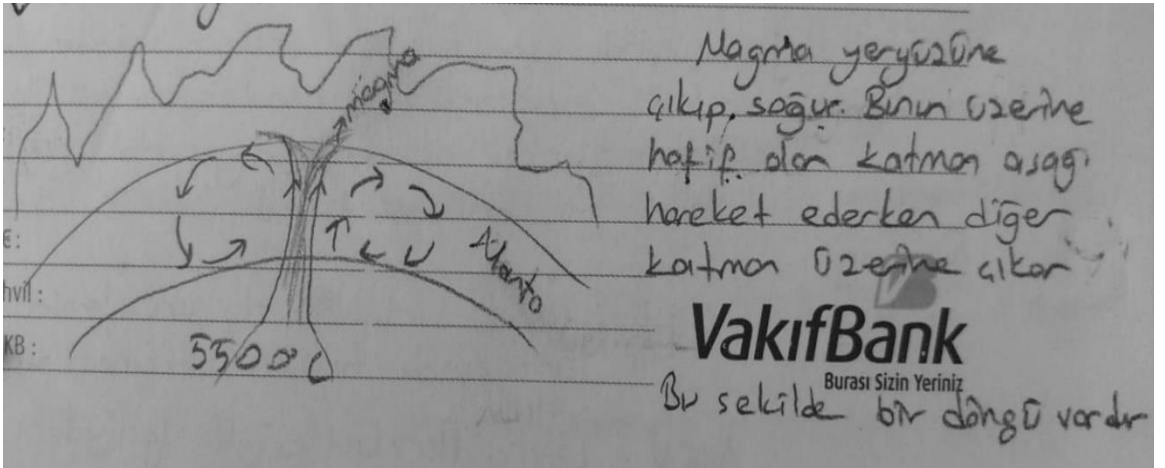 Magma
Magma yeryüzüne
çıkıp, soğur. Bunun üzerine
hafif olan katman aşağı
hareket ederken diğer
katman üzerine çıkar
Manto
5500°C
KB :
VakıfBank
Burası Sizin Yeriniz
Bu sekilde bir döngü vardır